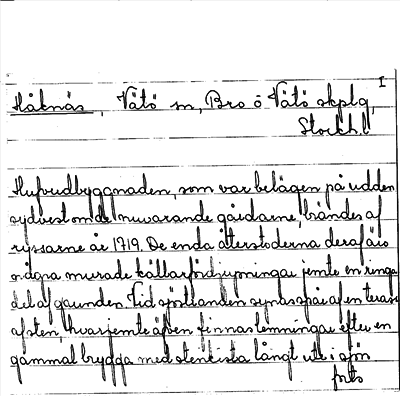 I
Håknäs, Vätö sn, Bro o Vätö skplg,
Stockh.l
Hufvudbyggnaden, som var belägen på udden
sydvest om de nuvarande gårdarne, brändes af
ryssarne år 1719. De enda återstoderna deraf äro
några murade källarfördjupningar jemte en ringa
del af grunden. Vid sjöstranden synas spår af en terass
af sten, hvarjemte äfven finnas lemningar efter en
gammal brygga med stenkista långt ute i sjön